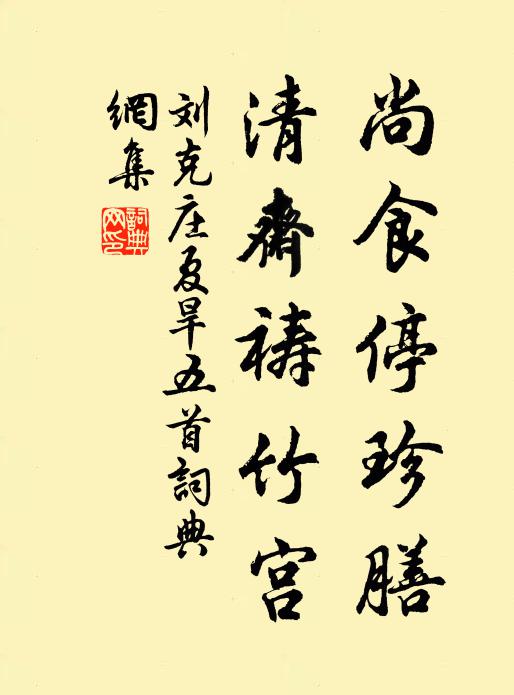 尚食停珍膳
清齋禱竹宫
刘克庄夏旱五首詞典
網集
詞典网印